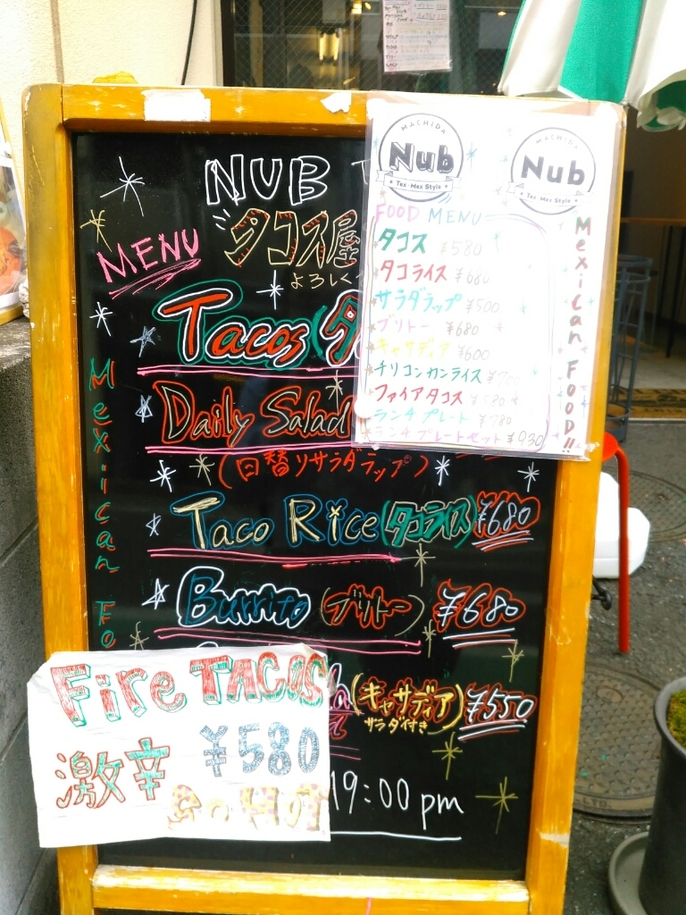 NUB
タコス屋
よろしく
MENU
Tacos
Daily Salad
(日替りサラダラップ)
Taco Rice (タコライス) ¥680
Burrito (ブリトー) ¥680
(キャサディア) ¥550
サラダ付き
19:00 pm
Mexican Fo
MACHIDA
Nub
Tex-Mex Style
MACHIDA
Nub
Tex-Mex Style
FOOD MENU
タコス ¥580
タコライス ¥680
サラダラップ ¥500
ブリトー ¥680
キャサディア ¥600
チリコンカンライス
ファイアタコス ¥580
ランチプレート ¥780
ランチプレートセット ¥930
Mexican FOOD!!
Fire TACOS
激辛 ¥580
So HOT